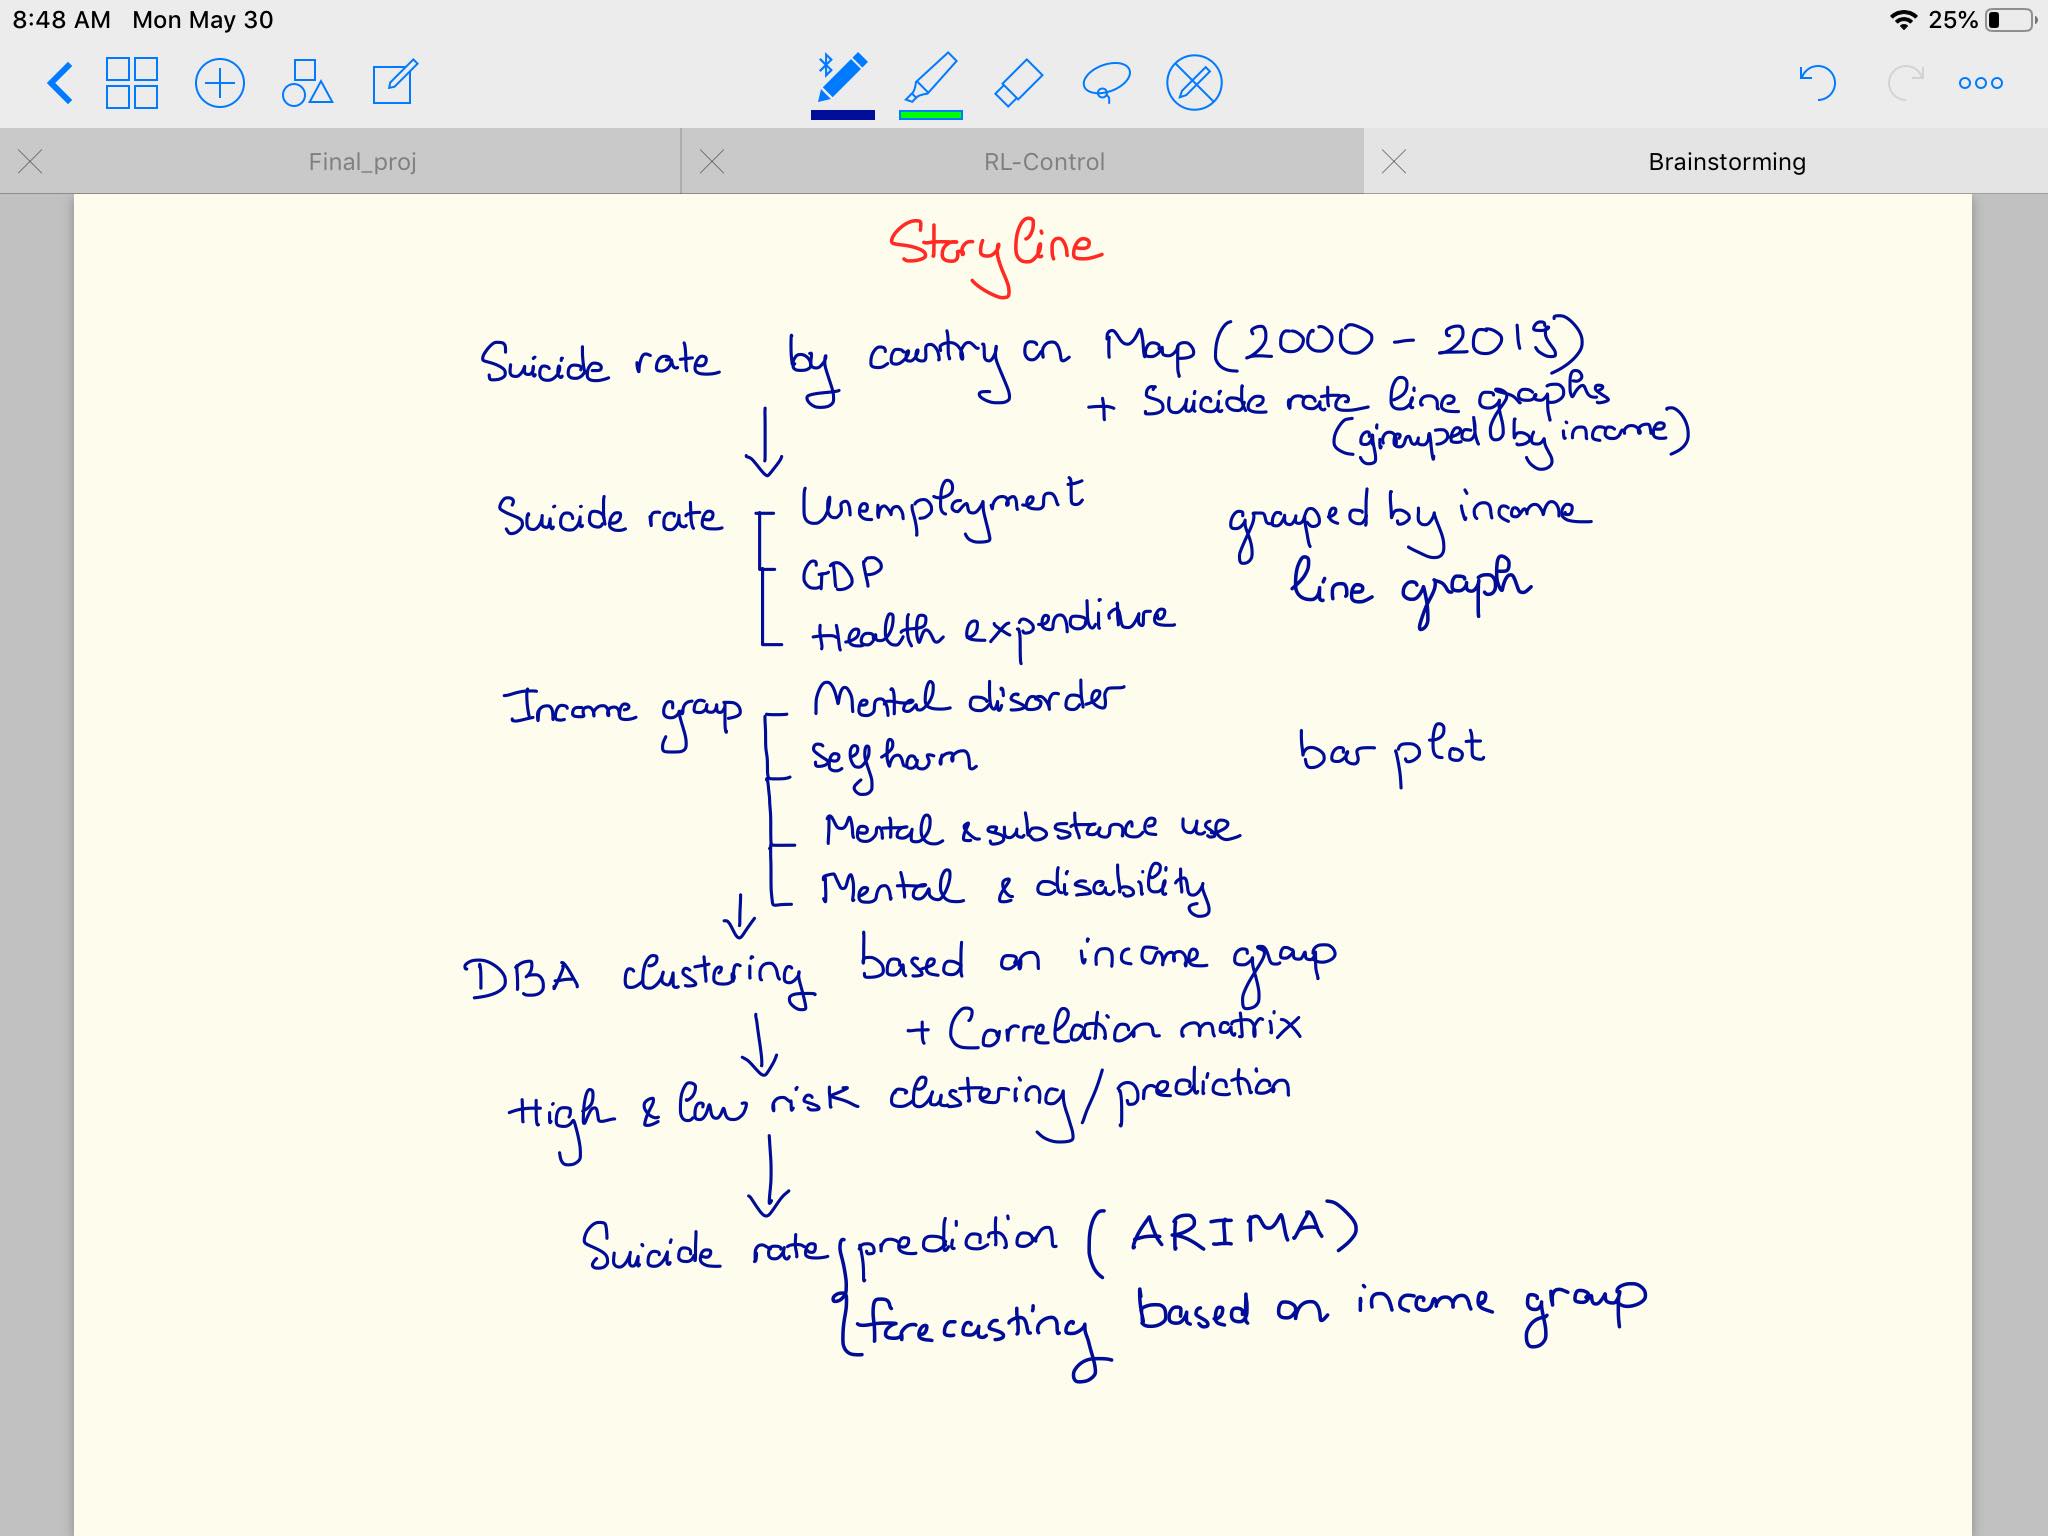 8:48 AM Mon May 30
25%
Final_proj
RL-Control
Brainstorming
Storyline
Suicide rate by country on Map (2000 - 2019)
+ Suicide rate line graphs
(grouped by income)
Suicide rate
Unemployment
grouped by income
GDP
line graph
Health expenditure
Income group
Mental disorder
Self harm
bar plot
Mental & substance use
Mental & disability
DBA clustering based on income group
+ Correlation matrix
High & low risk clustering/prediction
Suicide rate prediction (ARIMA)
forecasting based on income group